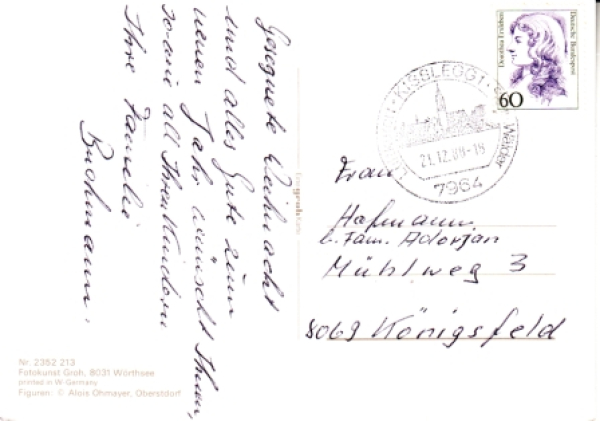 Gesegnete Weihnacht
und alles Gute zum
neuen Jahr wünscht Ihnen,
sowie all Ihren Kindern
Ihre Familie
Buohmann.
Dorothea Erxleben
Deutsche Bundespost
60
KISSLEGG 1
Wälder
21.12.88-18
7964
Frau
Hofmann
b. Fam. Adorjan
Mühlweg 3
8069 Königsfeld
Nr. 2352 213
Fotokunst Groh, 8031 Wörthsee
printed in W-Germany
Figuren: © Alois Ohmayer, Oberstdorf